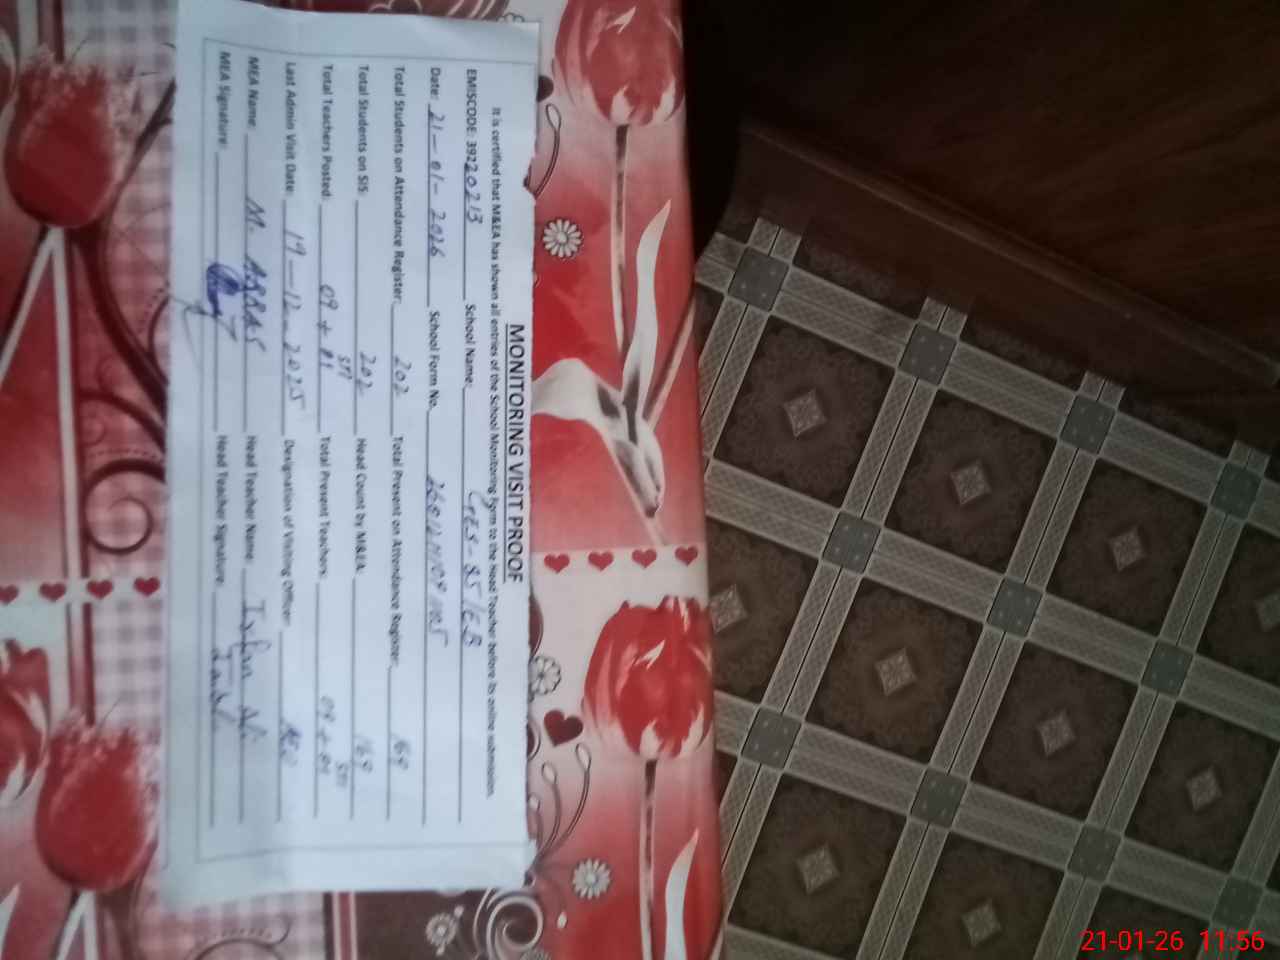 MONITORING VISIT PROOF
It is certified that M&EA has shown all entries of the School Monitoring Form to the Head Teacher before its online submission.
EMISCODE: 39220213 School Name: GES-85/EB
Date: 21-01-2026 School Form No.
Total Students on Attendance Register: 202 Total Present on Attendance Register: 169
Total Students on SIS: 202 Head Count by M&EA: 169
Total Teachers Posted: 09 + 01 STI Total Present Teachers: 09 + 01 STI
Last Admin Visit Date: 19-12-2025 Designation of Visiting Officer: AEO
MEA Name: M. ABBAS Head Teacher Name: Irfan Ali
MEA Signature: Head Teacher Signature:
21-01-26 11:56